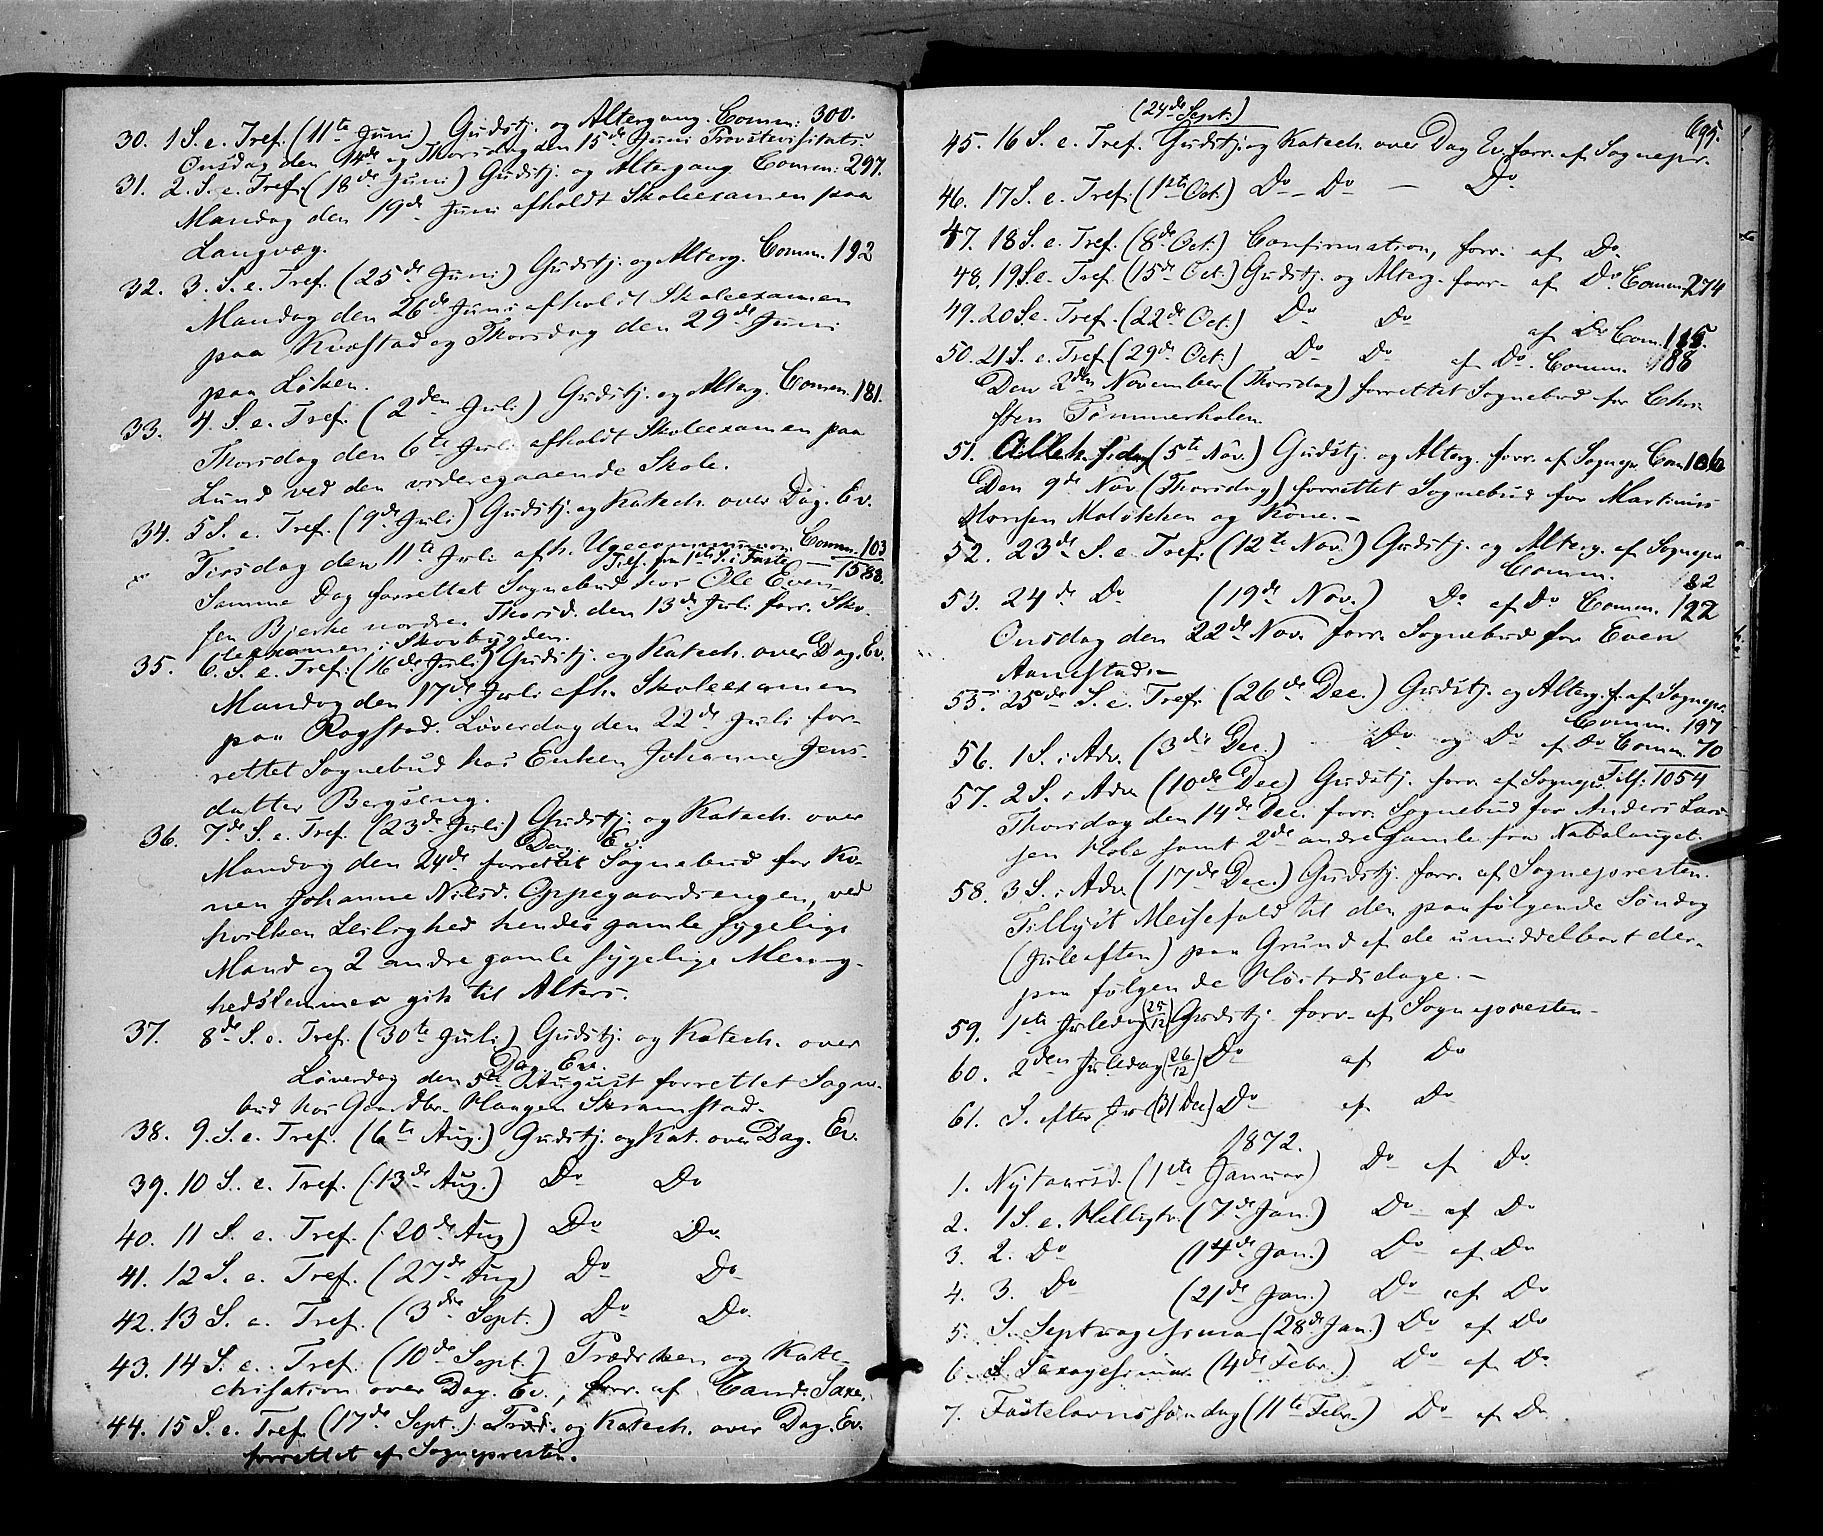 30. 1 S. e. Tref. (11te Juni) Gudstj. og Altergang. Comm: 300.
Onsdag den 14de og Thorsdag den 15de Juni Provstevisitats.
31. 2. S. e. Tref. (18de Juni) Gudstj. og Altergang Comm: 297.
Mandag den 19de Juni afholdt Skoleexamen paa
Langvæg.
32. 3. S. e. Tref. (25de Juni) Gudstj. og Alterg. Comm. 192
Mandag den 26de Juni afholdt Skoleexamen
paa Kvæstad og Thorsdag den 29de Juni
paa Løken.
33. 4. S. e. Tref. (2den Juli) Gudstj. og Alterg. Comm. 181.
Thorsdag den 6te Juli afholdt Skoleexamen paa
Lund ved den videregaaende Skole.
34. 5 S. e. Tref. (9de Juli) Gudstj. og Katech. over Dag. Ev.
Tirsdag den 11te Juli afh. Ugecommunion Comm. 103
Tils. fra 1ste S. i Faste — 1588.
Samme Dag forrettet Sognebud hos Ole Even-
sen Bjerke nordre. Thorsd. den 13de Juli forr. Sko-
leexamen i Skovbygden.
35. 6. S. e. Tref. (16de Juli) Gudstj. og Katech. over Dag. Ev.
Mandag den 17de Juli afh. Skoleexamen
paa Rogstad. Løverdag den 22de Juli for-
rettet Sognebud hos Enken Johanne Jens-
datter Bergseng.
36. 7de S. e. Tref. (23de Juli) Gudstj. og Katech. over
Dag. Ev.
Mandag den 24de forrettet Sognebud for Ko-
nen Johanne Nilsd. Oppegaardsengen, ved
hvilken Leilighed hendes gamle sygelige
Mand og 2 andre gamle sygelige Menig-
hedslemmer gik til Alters.
37. 8de S. e. Tref. (30te Juli) Gudstj. og Katech. over
Dag. Ev.
Løverdag den 5te August forrettet Sogne-
bud hos Gaardbr. Haagen Skramstad.
38. 9. S. e. Tref. (6te Aug.) Gudstj. og Kat. over Dag. Ev.
39. 10 S. e. Tref. (13de Aug.) Do Do
40. 11 S. e. Tref. (20de Aug) Do Do
41. 12 S. e. Tref. (27de Aug) Do Do
42. 13 S. e. Tref. (3die Sept.) Do Do
43. 14 S. e. Tref. (10de Sept.) Prædiken og Kate-
chisation over Dag. Ev., forr. af Cand. Saxe.
44. 15 S. e. Tref. (17de Sept.) Præd. og Katech. over Dag. Ev.
forrettet af Sognepresten.
695.
(24de Sept.)
45. 16 S. e. Tref. Gudstj. og Katech. over Dag Ev. forr. af Sognepr.
46. 17 S. e. Tref. (1ste Oct.) Do Do — Do
47. 18 S. e. Tref. (8de Oct.) Confirmation, forr. af Do
48. 19 S e. Tref. (15de Oct.) Gudstj. og Alterg. forr. af Do Comm. 274
49. 20 S e. Tref. (22de Oct.) Do Do af Do Com. 115.
50. 21 S. e. Tref. (29de Oct.) Do Do af Do. Comm. 88
Den 2den November (Thorsdag) forrettet Sognebud for Chri-
sten Tømmerholen
51. Alleh. sdag (5te Nov.) Gudstj. og Alterg. forr. af Sognepr. Com. 106
Den 9de Nov (Thorsdag) forrettet Sognebud for Martinius
Hansen Moløkken og Kone. —
52. 23de S. e. Tref. (12te Nov.) Gudstj. og Alterg. af Sognepr
Comm. 82
53. 24de Do (19de Nov.) Do af Do Comm. 122
Onsdag den 22de Nov. forr. Sognebud for Even
Aanestad. —
55. 25de S. e. Tref. (26de Dec.) Gudstj. og Alterg. f. af Sognepr.
Comm. 197
56. 1 S. i Adv. (3die Dec.) Do og Do af Do Comm. 70
57. 2 S. i Adv (10de Dec) Gudstj. forr. af Sognepr. Tils: 1054
Thorsdag den 14de Dec. forr. Sognebud for Anders Lar-
sen Hole samt 2de andre gamle fra Nabolauget.
58. 3 S. i Adv. (17de Dec.) Gudstj. forr. af Sognepresten.
Tillyst Messefald til den paafølgende Søndag
(Juleaften) paa Grund af de umiddelbart der-
paa følgende Høitidsdage. —
59. 1ste Juledag (25/12) Gudstj. forr. af Sognepresten —
60. 2den Juledag (26/12) Do af Do
61. S. efter Jul (31 Dec) Do af Do
1872.
1. Nytaarsd. (1ste Januar) Do af Do
2. 1 S. e. Helligtr. (7de Jan.) Do af Do
3. 2. Do (14de Jan.) Do af Do
4. 3. Do (21de Jan.) Do af Do
5. S. Septuagesima (28de Jan.) Do af Do
6. S Sexagesima (4de Febr.) Do af Do
7. Fastelavnssøndag (11te Febr.) Do af Do